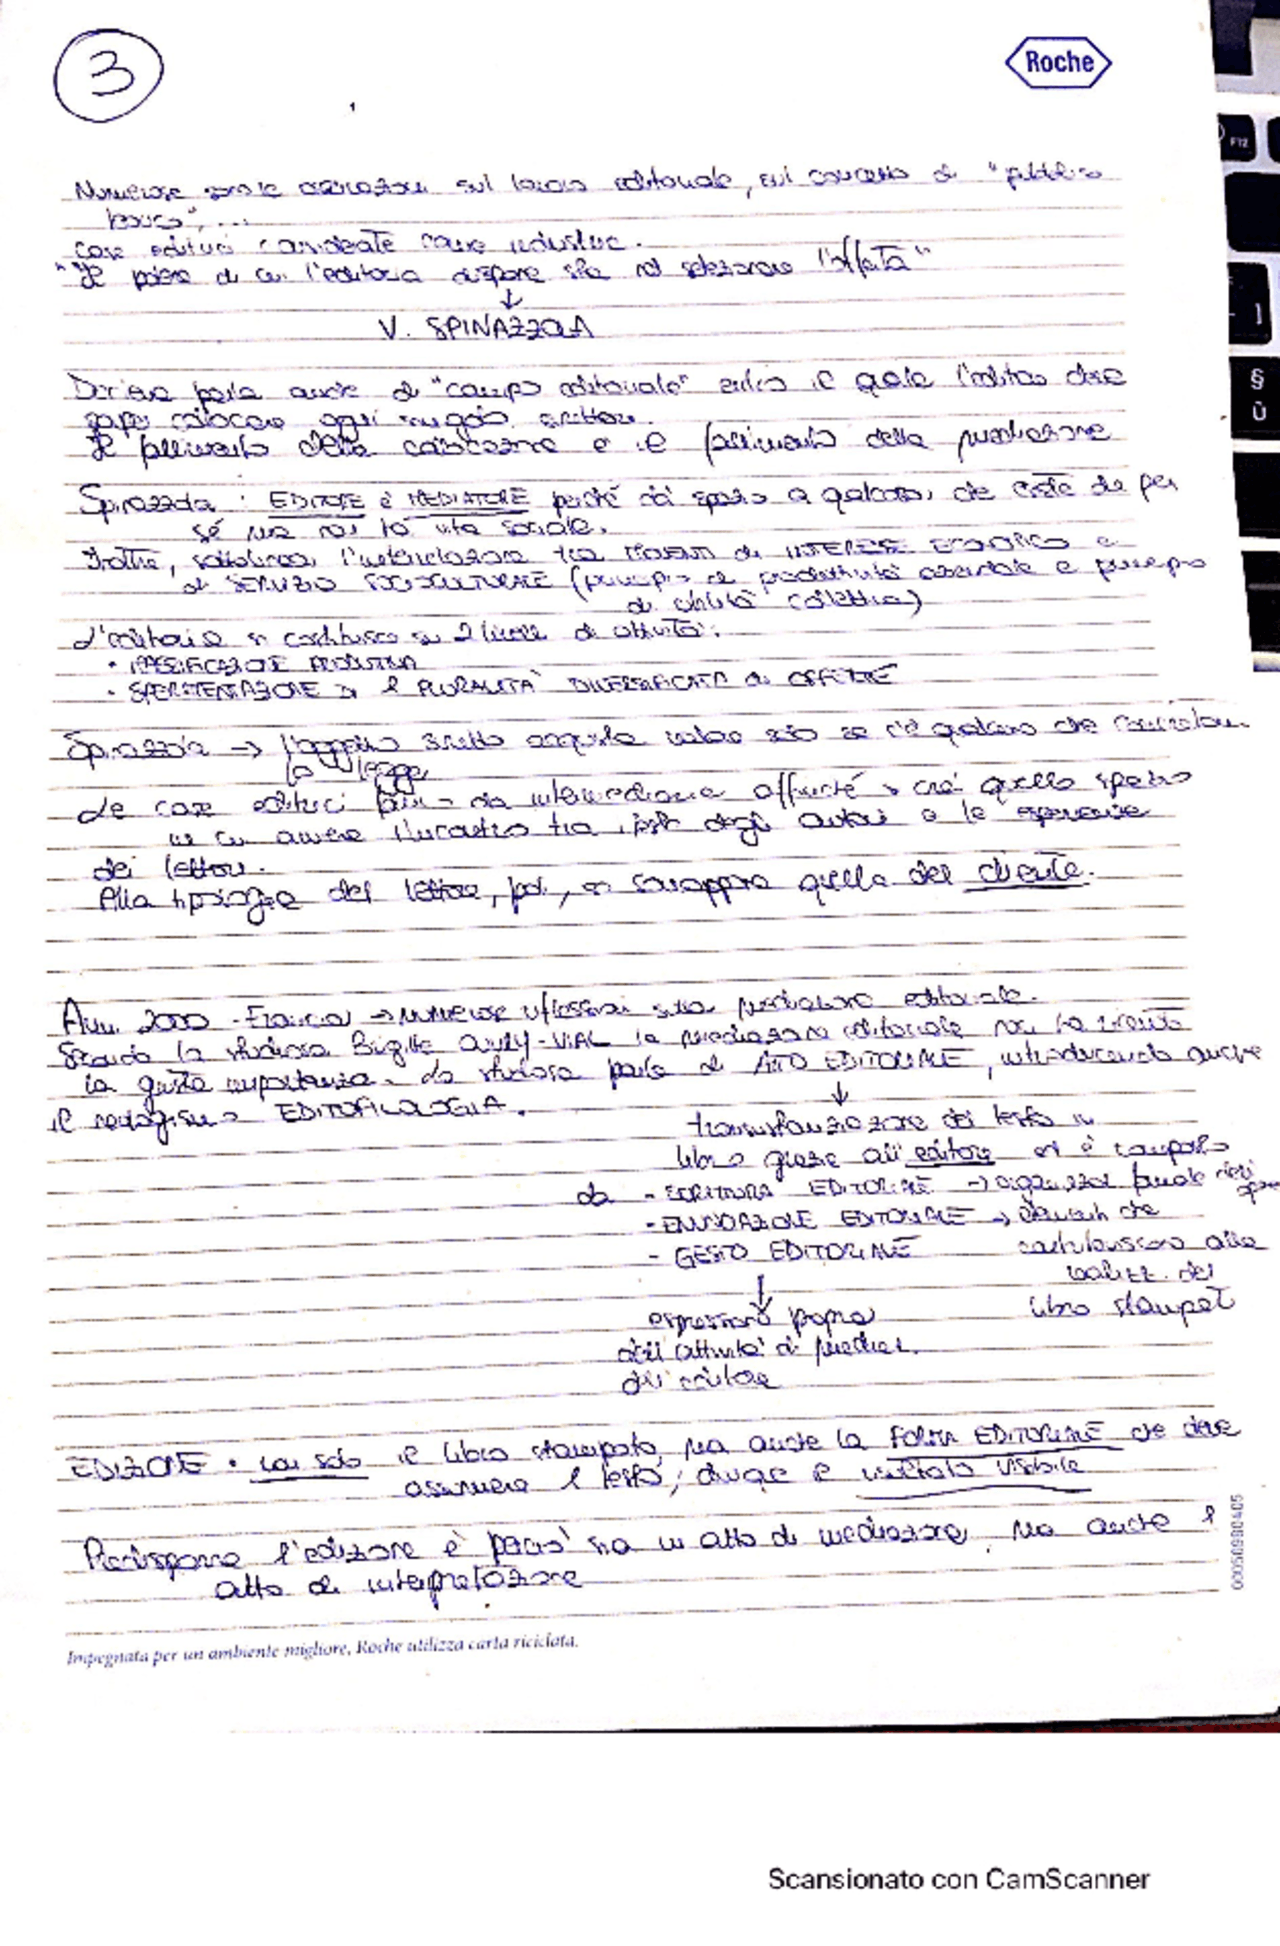 3
Roche
Numerose sono le sul lavoro editoriale, sul concetto di "pubblico
",...
Case editrici considerate come industrie.
"Il potere di cui l'editoria dispone sta nel selezionare l'offerta"
↓
V. SPINAZZOLA
parla anche di "campo editoriale" entro il quale l'editore deve
saper collocare ogni singolo
Il fallimento della collocazione è il fallimento della mediazione
Spinazzola: EDITORE è MEDIATORE perché dà spazio a qualcosa che esiste di per
sé ma non ha vita sociale.
Inoltre, sottolinea l'interrelazione tra di INTERESSE ECONOMICO e
di SERVIZIO SOCIOCULTURALE (principio di produttività aziendale e principio
di utilità collettiva)
L'editoria si costituisce su 2 livelli di attività:
• MASSIFICAZIONE PRODUTTIVA
• SPERIMENTAZIONE DI PLURALITÀ DIVERSIFICATA di OFFERTE
Spinazzola → l'oggetto scritto acquista valore solo se c'è qualcuno che
lo legge
Le case editrici fanno da intermediarie affinché si crei quello spazio
in cui avviene l'incontro tra degli autori e le esperienze
dei lettori.
Alla tipologia del lettore, poi, si sovrappone quella del cliente.
Anni 2000 - Francia → numerose riflessioni sulla mediazione editoriale.
Secondo la studiosa Brigitte Ouvry-VIAL la mediazione editoriale non ha
la giusta importanza. La studiosa parla di ATTO EDITORIALE, introducendo anche
il neologismo EDITOFILOLOGIA.
↓
transustanziazione del testo in
libro grazie all'editore ed è composto
da - SCRITTURA EDITORIALE →
- ENUNCIAZIONE EDITORIALE → elementi che
- GESTO EDITORIALE contribuiscono alla
realizz. del
↓ libro stampato
espressione propria
dell'attività di mediaz.
dell'editore
EDIZIONE • non solo il libro stampato, ma anche la FORMA EDITORIALE che deve
assumere il testo; dunque il risultato visibile
Predisporre l'edizione è perciò sia un atto di mediazione, ma anche 1
atto di interpretazione
Impegnata per un ambiente migliore, Roche utilizza carta riciclata.
Scansionato con CamScanner